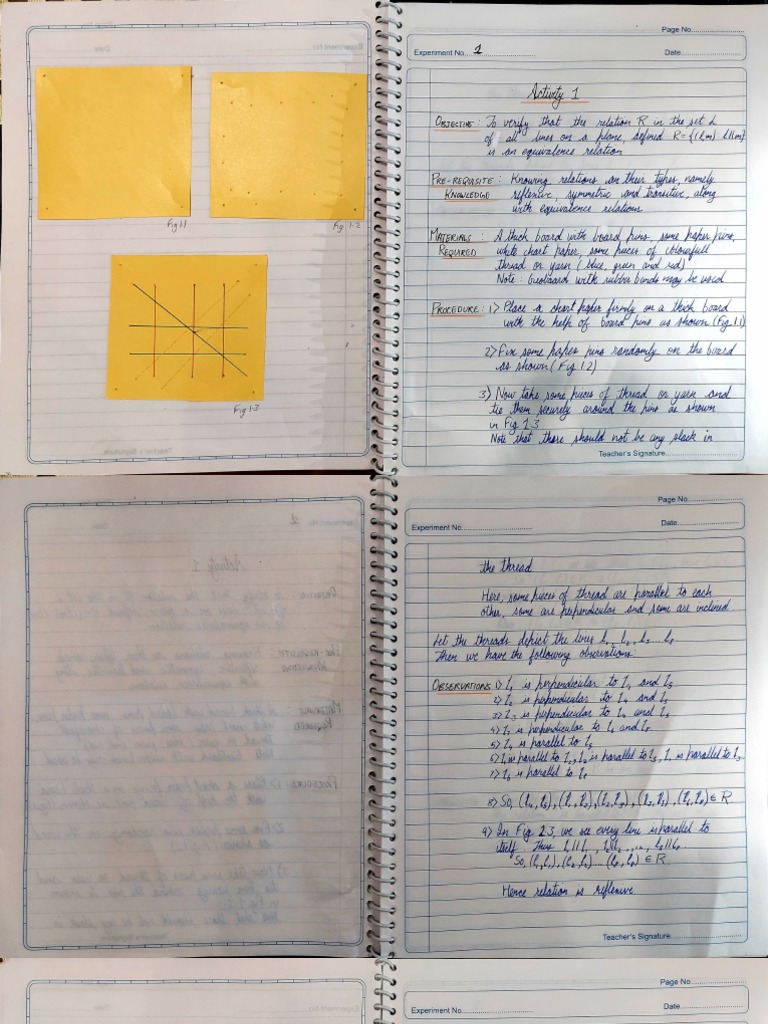 Fig 1.1
Fig. 1-2
Fig 1.3
Page No.
Experiment No. 1
Date
Activity 1
OBJECTIVE: To verify that the relation R in the set L
of all lines on a plane, defined R = {(l,m): l||m}
is an equivalence relation
PRE-REQUISITE : Knowing relations on their types, namely
KNOWLEDGE reflexive, symmetric and transitive, along
with equivalence relations
MATERIALS : A thick board with board pins, some paper pins,
REQUIRED white chart paper, some pieces of colourfull
thread or yarn (blue, green and red)
Note : Geoboard with rubber bands may be used
PROCEDURE: 1> Place a chart paper firmly on a thick board
with the help of board pins as shown (Fig 1.1)
2> Fix some paper pins randomly on the board
as shown (Fig 1.2)
3) Now take some pieces of thread or yarn and
tie them securely around the pins as shown
in Fig 1.3
Note that there should not be any slack in
Teacher's Signature
Page No.
Experiment No.
Date
the thread
Here, some pieces of thread are parallel to each
other, some are perpendicular and some are inclined.
Let the threads depict the lines
Then we have the following observations:
OBSERVATIONS 1> is perpendicular to and
2> is perpendicular to and
3> is perpendicular to and
4> is perpendicular to and
5> is parallel to
6> is parallel to is parallel to is parallel to
7> is parallel to
8> So, ∈ R
9> In Fig 2.3, we see every line is parallel to
itself. Thus
So, ∈ R
Hence relation is reflexive
Teacher's Signature
Page No.
Experiment No.
Date